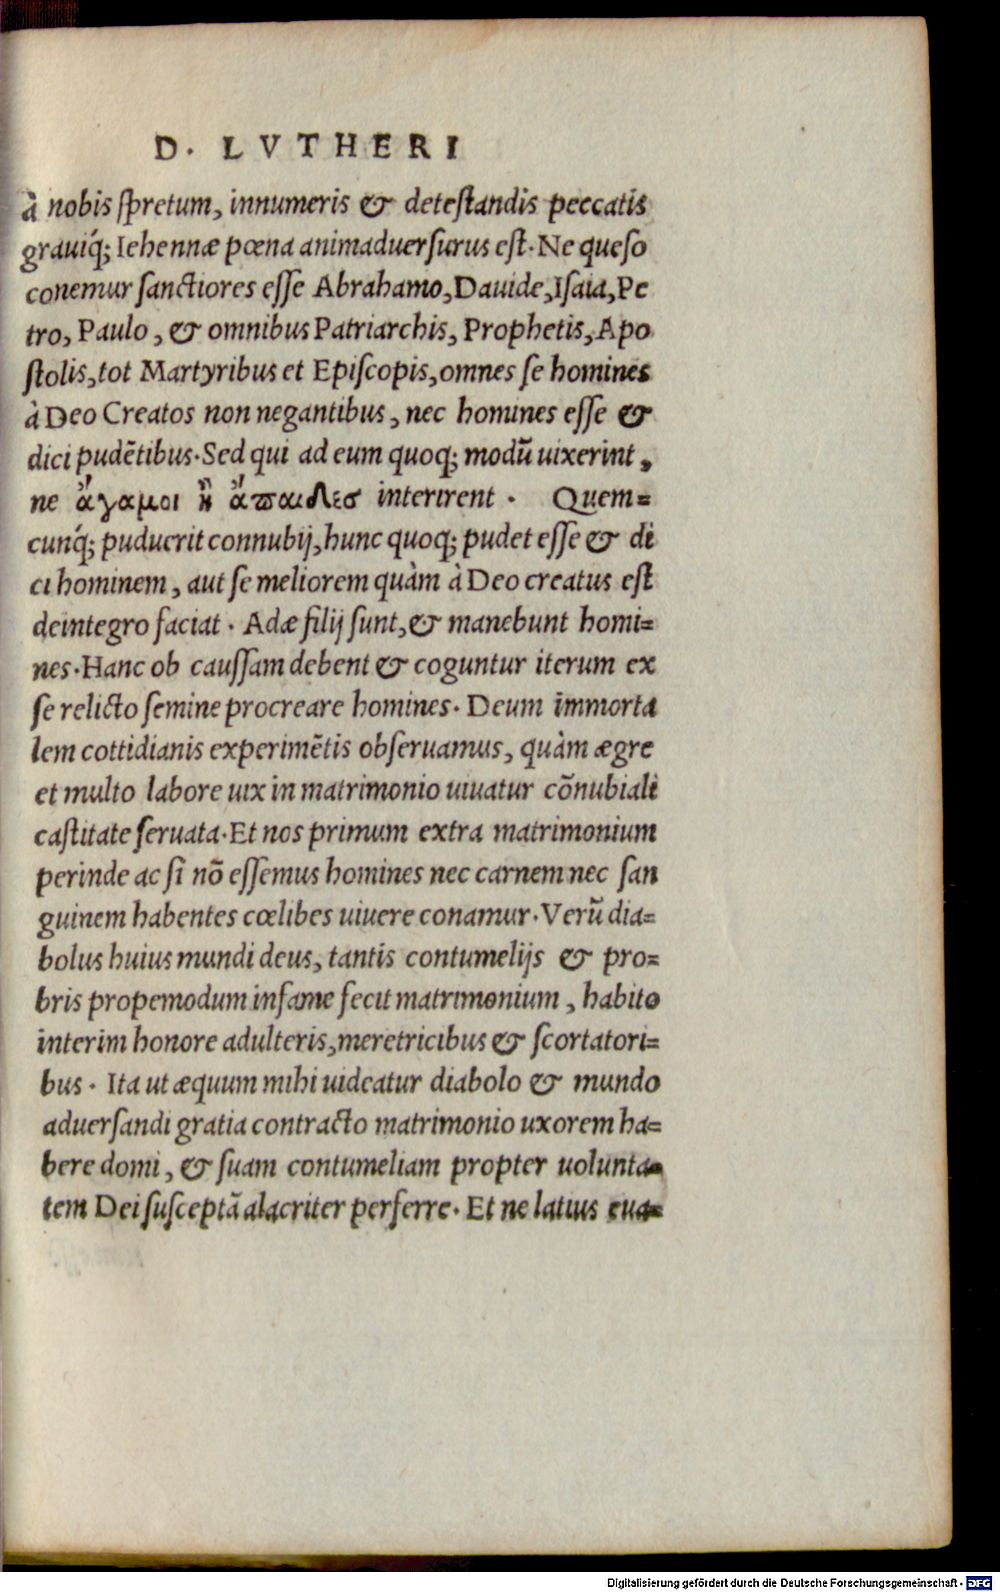 D. LVTHERI
à nobis spretum, innumeris & detestandis peccatis
grauiq́; Iehennæ pœna animaduersurus est. Ne queso
conemur sanctiores esse Abrahamo, Dauide, Isaia, Pe
tro, Paulo, & omnibus Patriarchis, Prophetis, Apo
stolis, tot Martyribus et Episcopis, omnes se homines
à Deo Creatos non negantibus, nec homines esse &
dici pudētibus. Sed qui ad eum quoq; modū uixerint,
ne ἄγαμοι ἢ ἄπαιδες interirent. Quem=
cunq́; puduerit connubij, hunc quoq; pudet esse & di
ci hominem, aut se meliorem quàm à Deo creatus est
deintegro faciat. Adæ filij sunt, & manebunt homi=
nes. Hanc ob caussam debent & coguntur iterum ex
se relicto semine procreare homines. Deum immorta
lem cottidianis experimētis obseruamus, quàm ægre
et multo labore uix in matrimonio uiuatur cōnubiali
castitate seruata. Et nos primum extra matrimonium
perinde ac si nō essemus homines nec carnem nec san
guinem habentes cœlibes uiuere conamur. Verū dia=
bolus huius mundi deus, tantis contumelijs & pro=
bris propemodum infame fecit matrimonium, habito
interim honore adulteris, meretricibus & scortatori=
bus. Ita ut æquum mihi uideatur diabolo & mundo
aduersandi gratia contracto matrimonio uxorem ha=
bere domi, & suam contumeliam propter uolunta=
tem Dei susceptā alacriter perferre. Et ne latius eua=
Digitalisierung gefördert durch die Deutsche Forschungsgemeinschaft - DFG